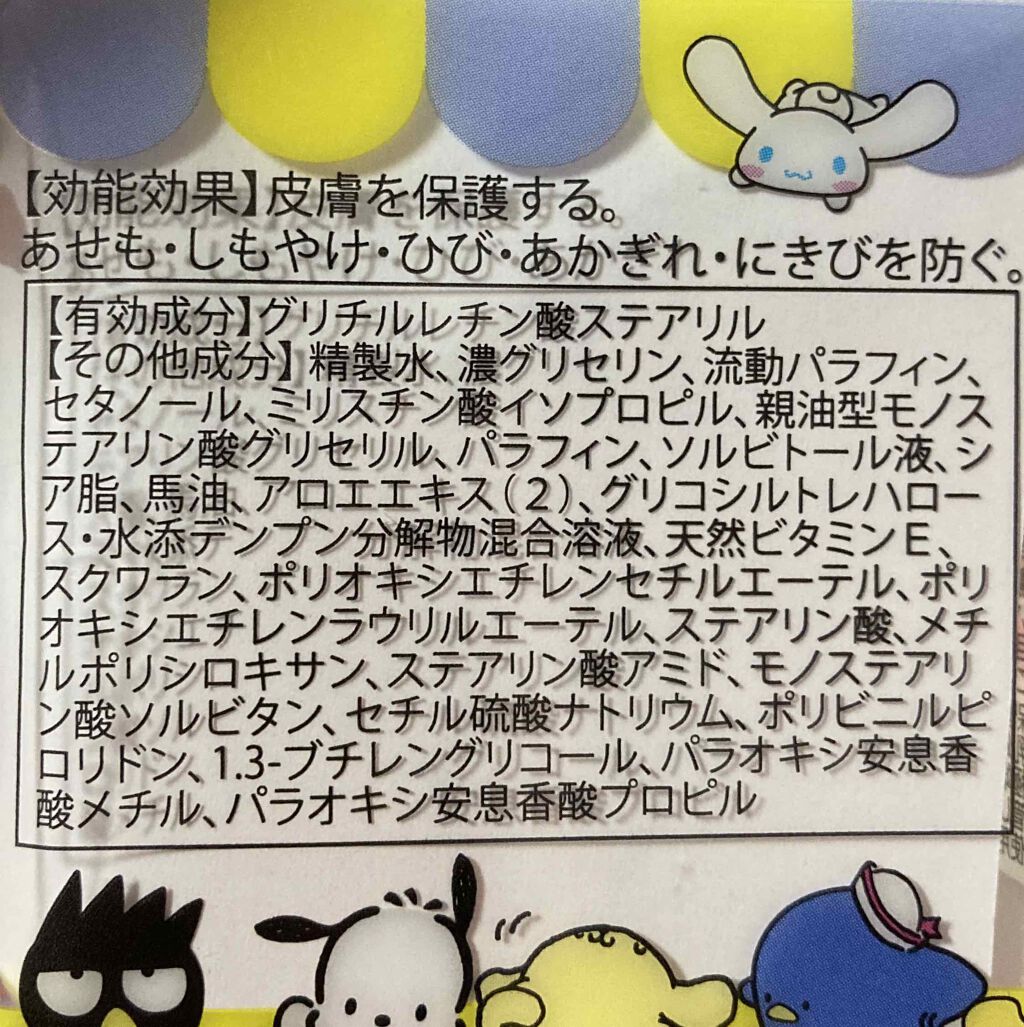 【効能効果】皮膚を保護する。
あせも・しもやけ・ひび・あかぎれ・にきびを防ぐ。
【有効成分】グリチルレチン酸ステアリル
【その他成分】精製水、濃グリセリン、流動パラフィン、
セタノール、ミリスチン酸イソプロピル、親油型モノス
テアリン酸グリセリル、パラフィン、ソルビトール液、シ
ア脂、馬油、アロエエキス(2)、グリコシルトレハロー
ス・水添デンプン分解物混合溶液、天然ビタミンE、
スクワラン、ポリオキシエチレンセチルエーテル、ポリ
オキシエチレンラウリルエーテル、ステアリン酸、メチ
ルポリシロキサン、ステアリン酸アミド、モノステアリ
ン酸ソルビタン、セチル硫酸ナトリウム、ポリビニルピ
ロリドン、1.3-ブチレングリコール、パラオキシ安息香
酸メチル、パラオキシ安息香酸プロピル